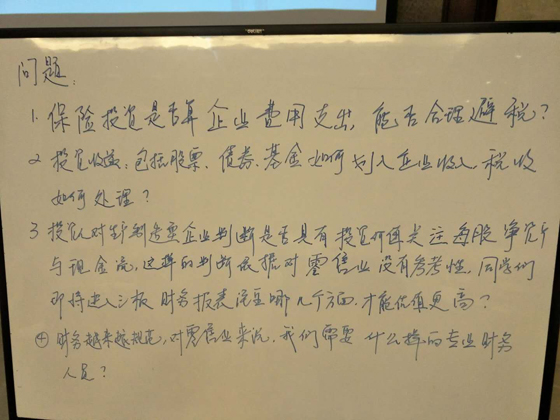 问题:
1. 保险投资是否算企业费用支出, 能否合理避税?
2 投资收益: 包括股票、债券、基金如何划入企业收入、税收
如何处理?
3 投资人对生产制造业企业判断是否具有投资价值关注每股净资产
与现金流, 这样的判断依据对零售业没有参考性, 同学们
即将进入三板 财务报表注重哪几个方面, 才能估值更高?
④ 财务越来越规范, 对零售业来说, 我们需要什么样的专业财务
人员?